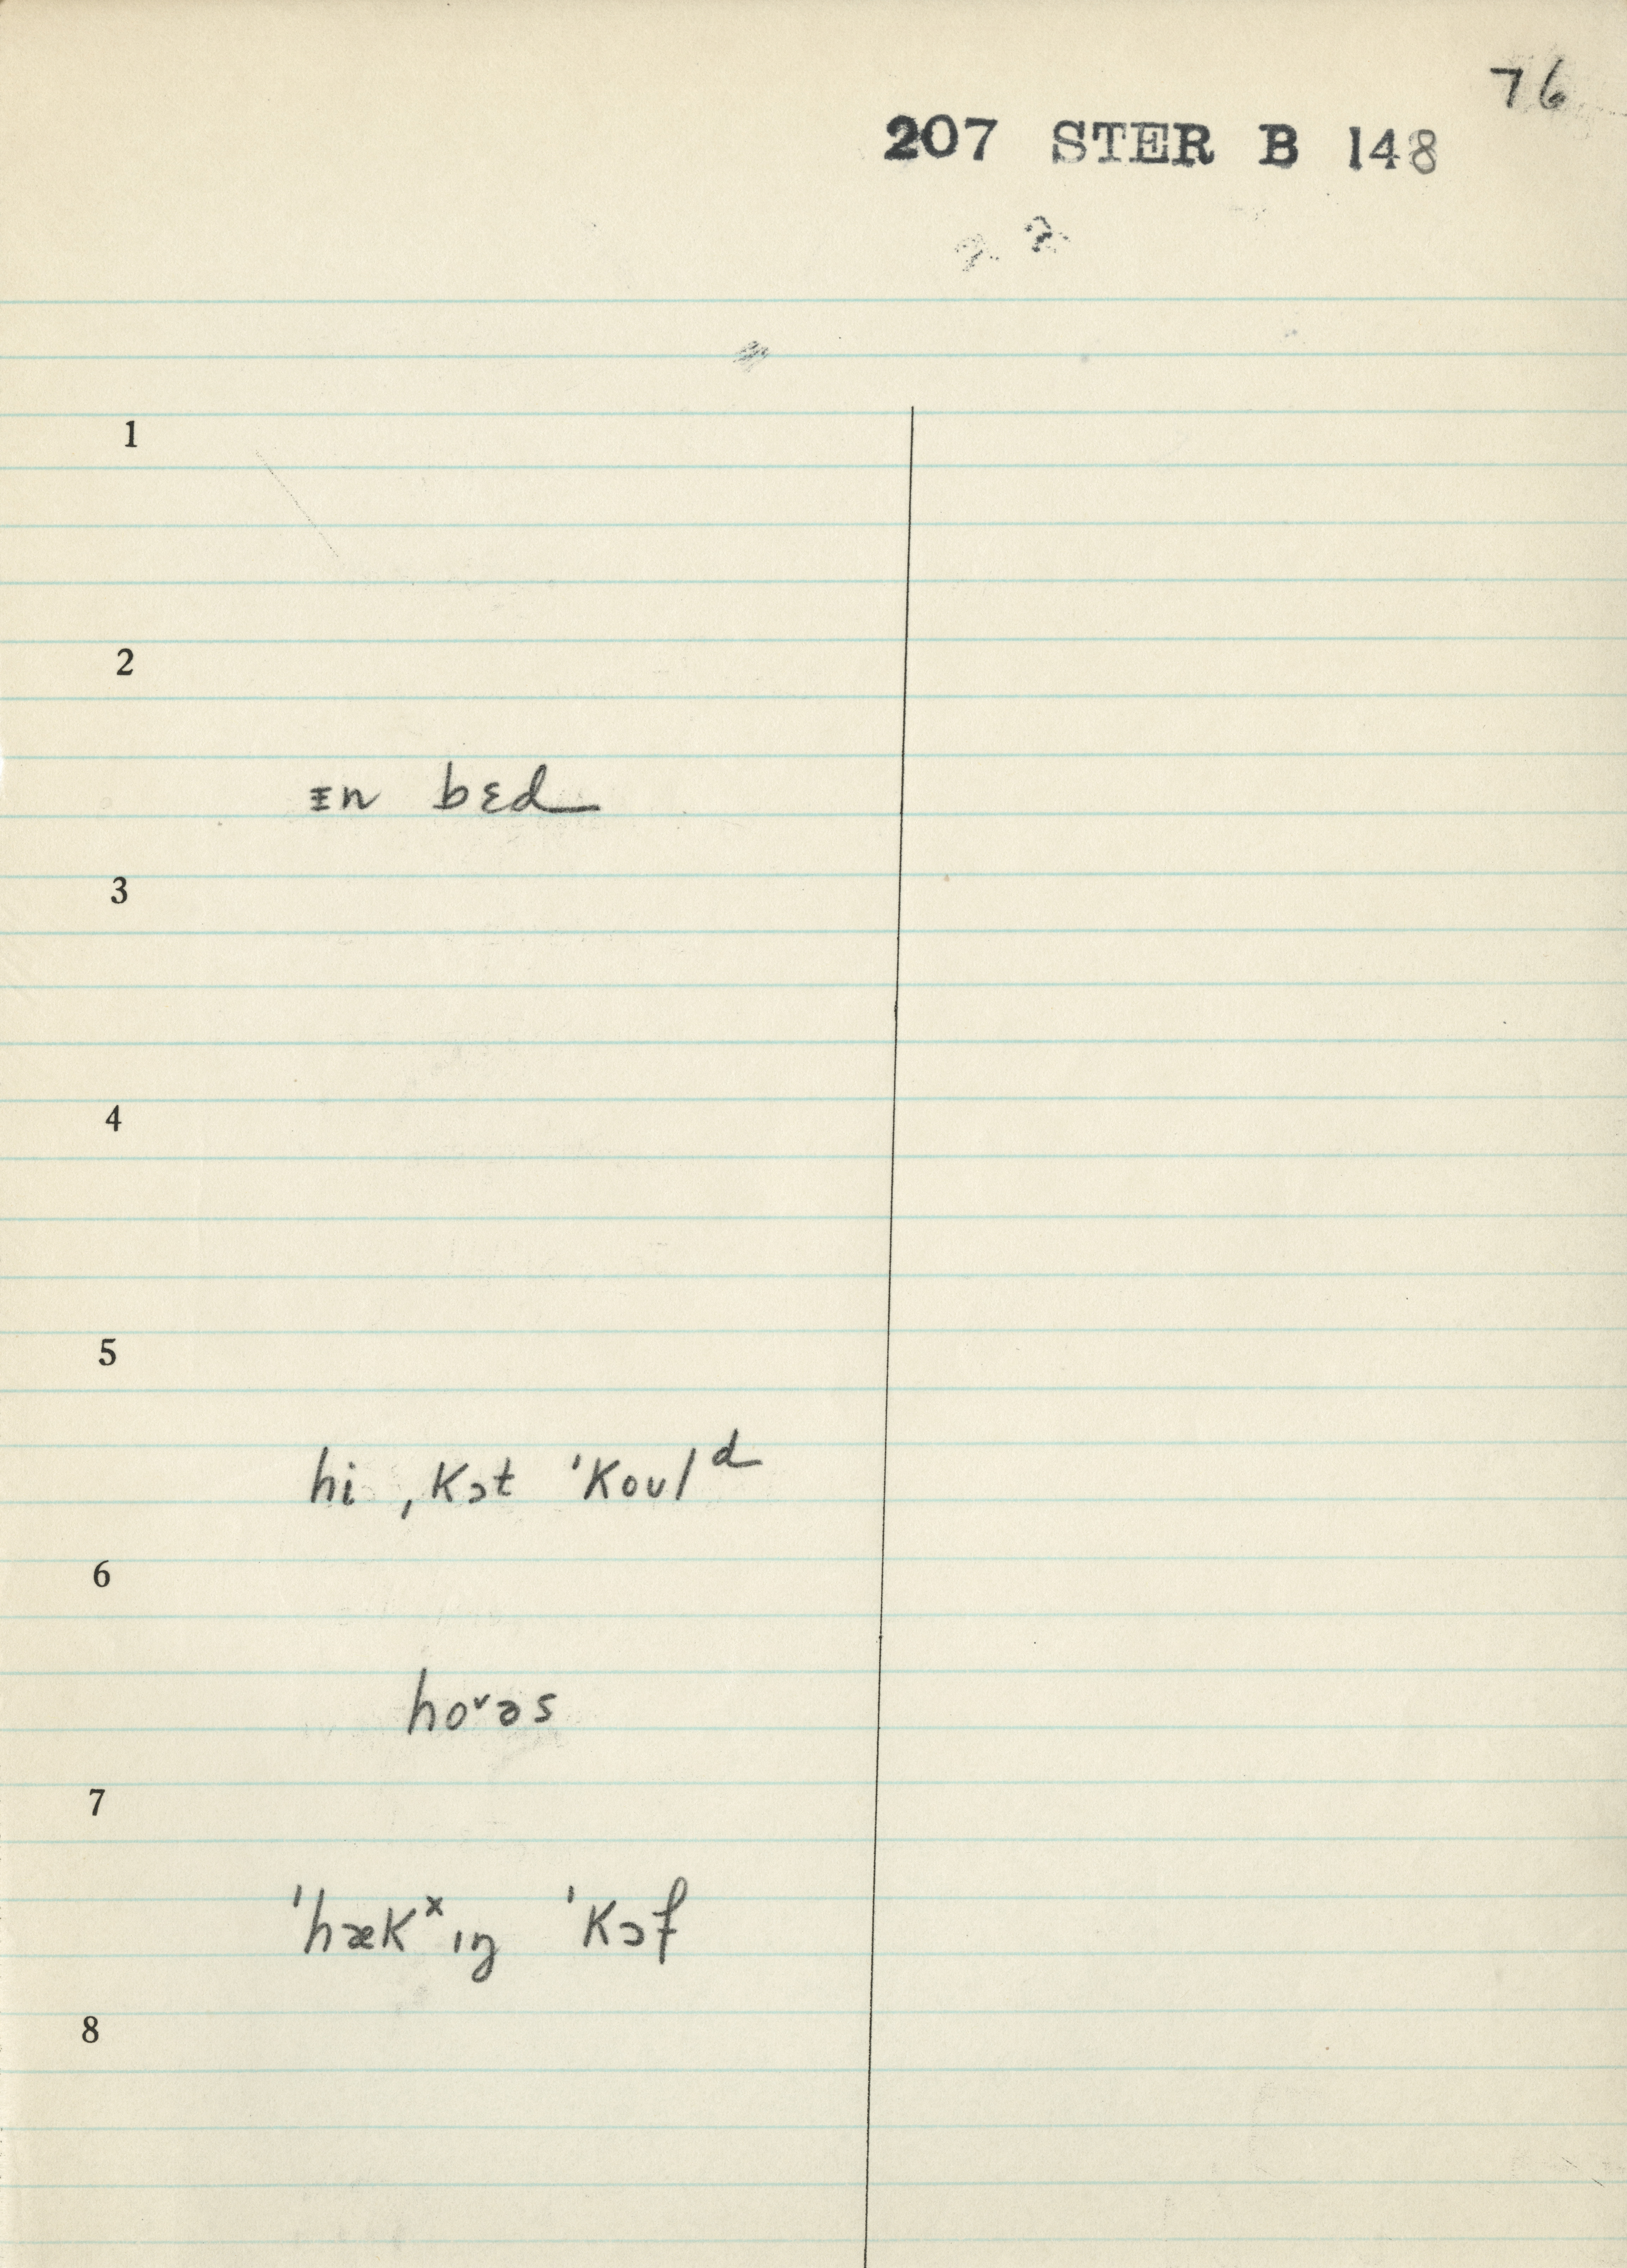 76
207 STER B 148
1
2
ɪn bɛd
3
4
5
hi ˌkɔt ˈkoʊlᵈ
6
hoˇəs
7
ˈhækˣɪŋ ˈkɔf
8